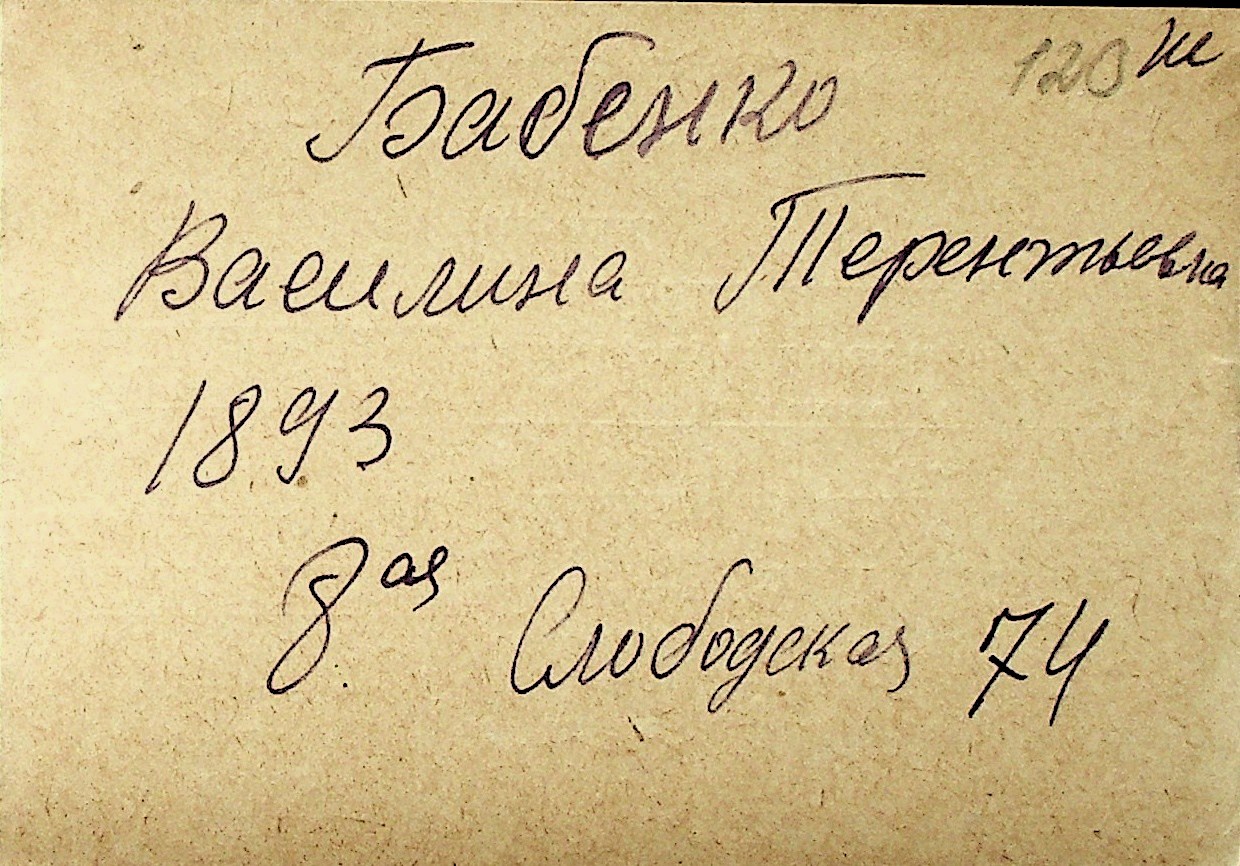 Бабенко
Василина Терентьевна
1893
8ая Слободская 74